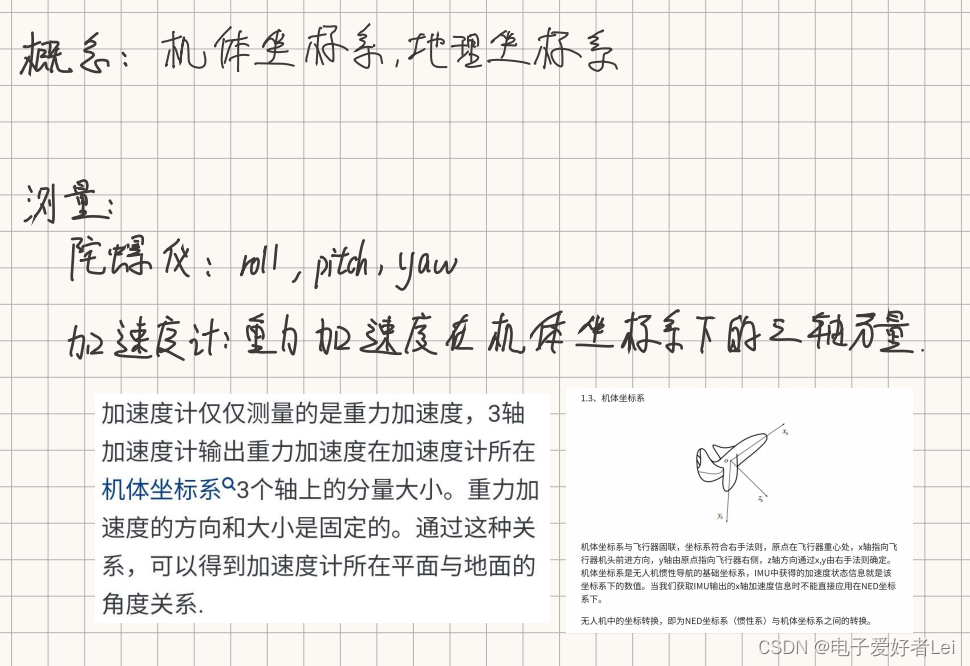 概念：机体坐标系,地理坐标系
测量：
陀螺仪：roll, pitch, yaw
加速度计：重力加速度在机体坐标系下的三轴分量.
加速度计仅仅测量的是重力加速度，3轴
加速度计输出重力加速度在加速度计所在
机体坐标系3个轴上的分量大小。重力加
速度的方向和大小是固定的。通过这种关
系，可以得到加速度计所在平面与地面的
角度关系.
1.3、机体坐标系
机体坐标系与飞行器固联，坐标系符合右手法则，原点在飞行器重心处，x轴指向飞
行器机头前进方向，y轴由原点指向飞行器右侧，z轴方向通过x,y由右手法则确定。
机体坐标系是无人机惯性导航的基础坐标系，IMU中获得的加速度状态信息就是该
坐标系下的数值。当我们获取IMU输出的x轴加速度信息时不能直接应用在NED坐标
系下。
无人机中的坐标转换，即为NED坐标系（惯性系）与机体坐标系之间的转换。
CSDN @电子爱好者Lei